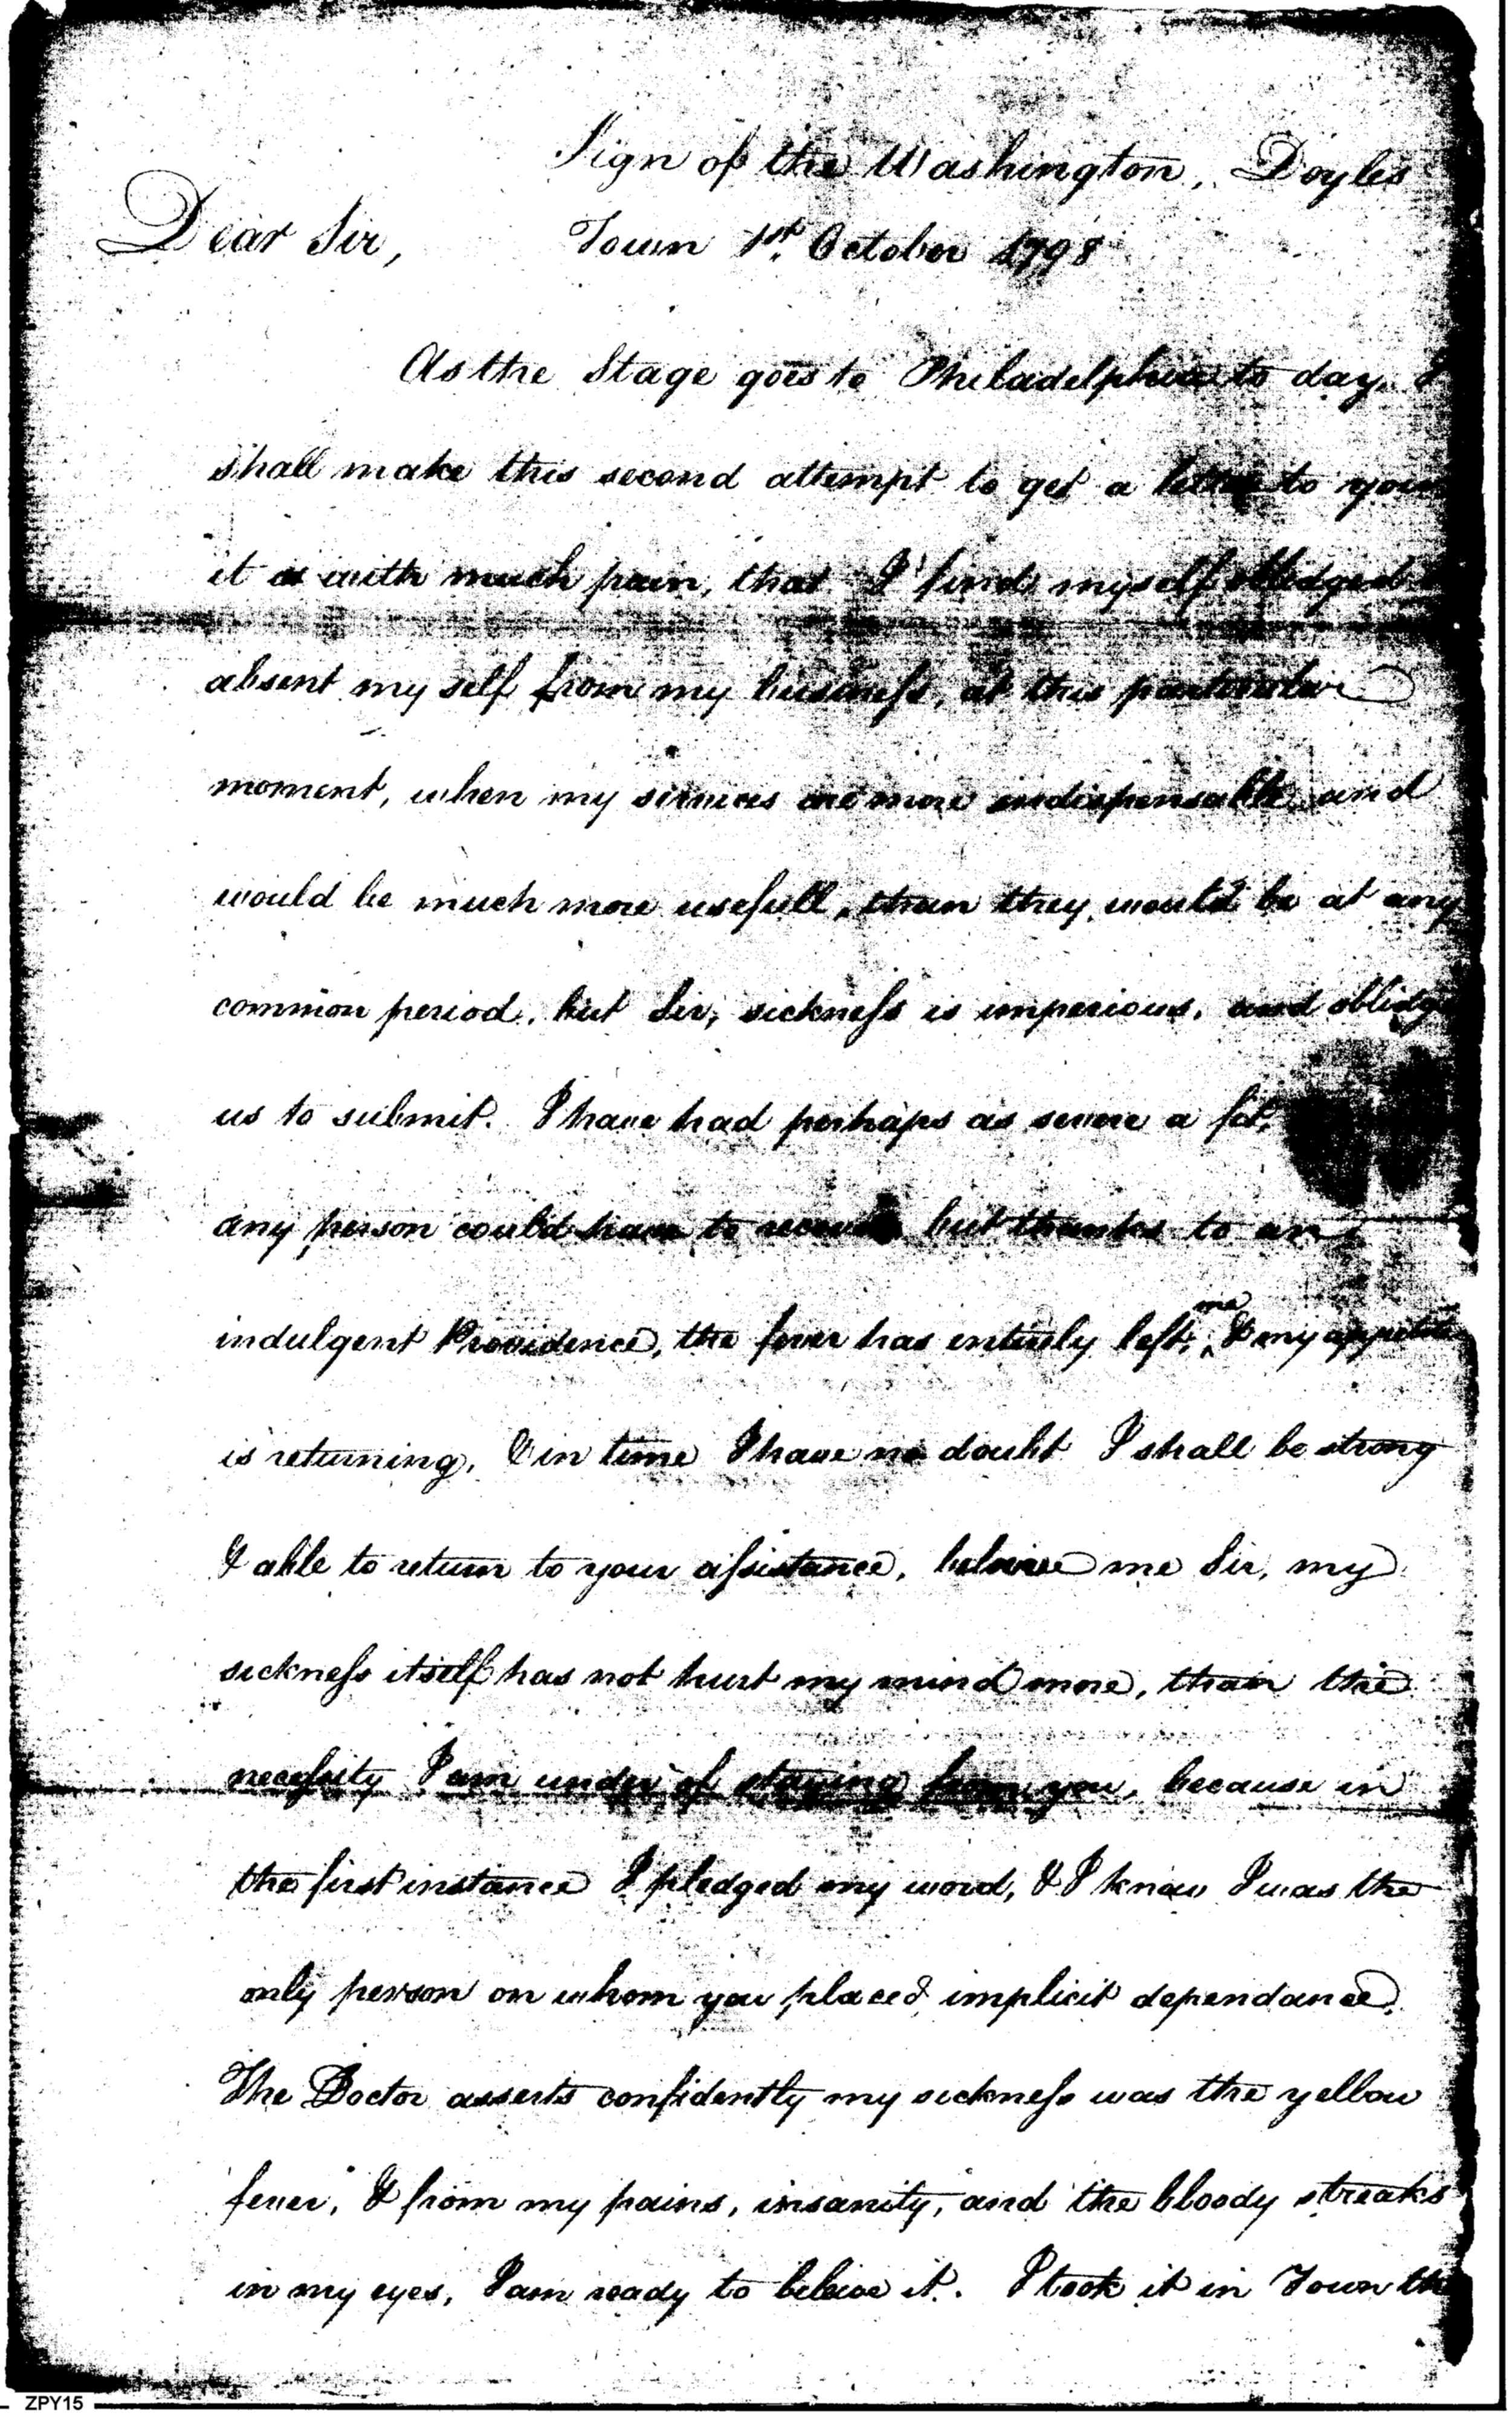 Sign of the Washington, Doyles
Dear Sir,
Town 1st. October 1798
As the Stage goes to Philadelphia to day, I
shall make this second attempt to get a letter to you
it is with much pain, that I find myself obledged
absent my self from my business, at this particular
moment, when my services are more indispensable and
would be much more usefull, than they would be at any
common period, but Sir, sickness is imperious, and oblidge
us to submit. I have had perhaps as severe a fit,
any person could have to recover but thanks to an
indulgent Providence, the fever has entirely left, me & my appetite
is returning, & in time I have no doubt I shall be strong
& able to return to your assistance, beleive me Sir, my
sickness itself has not hurt my mind more, than the
necessity I am under of staying from you, because in
the first instance I pledged my word, & I know I was the
only person on whom you placed implicit dependance.
The Doctor asserts confidently my sickness was the yellow
fever, & from my pains, insanity, and the bloody streaks
in my eyes, I am ready to beleive it. I took it in Town the
ZPY15